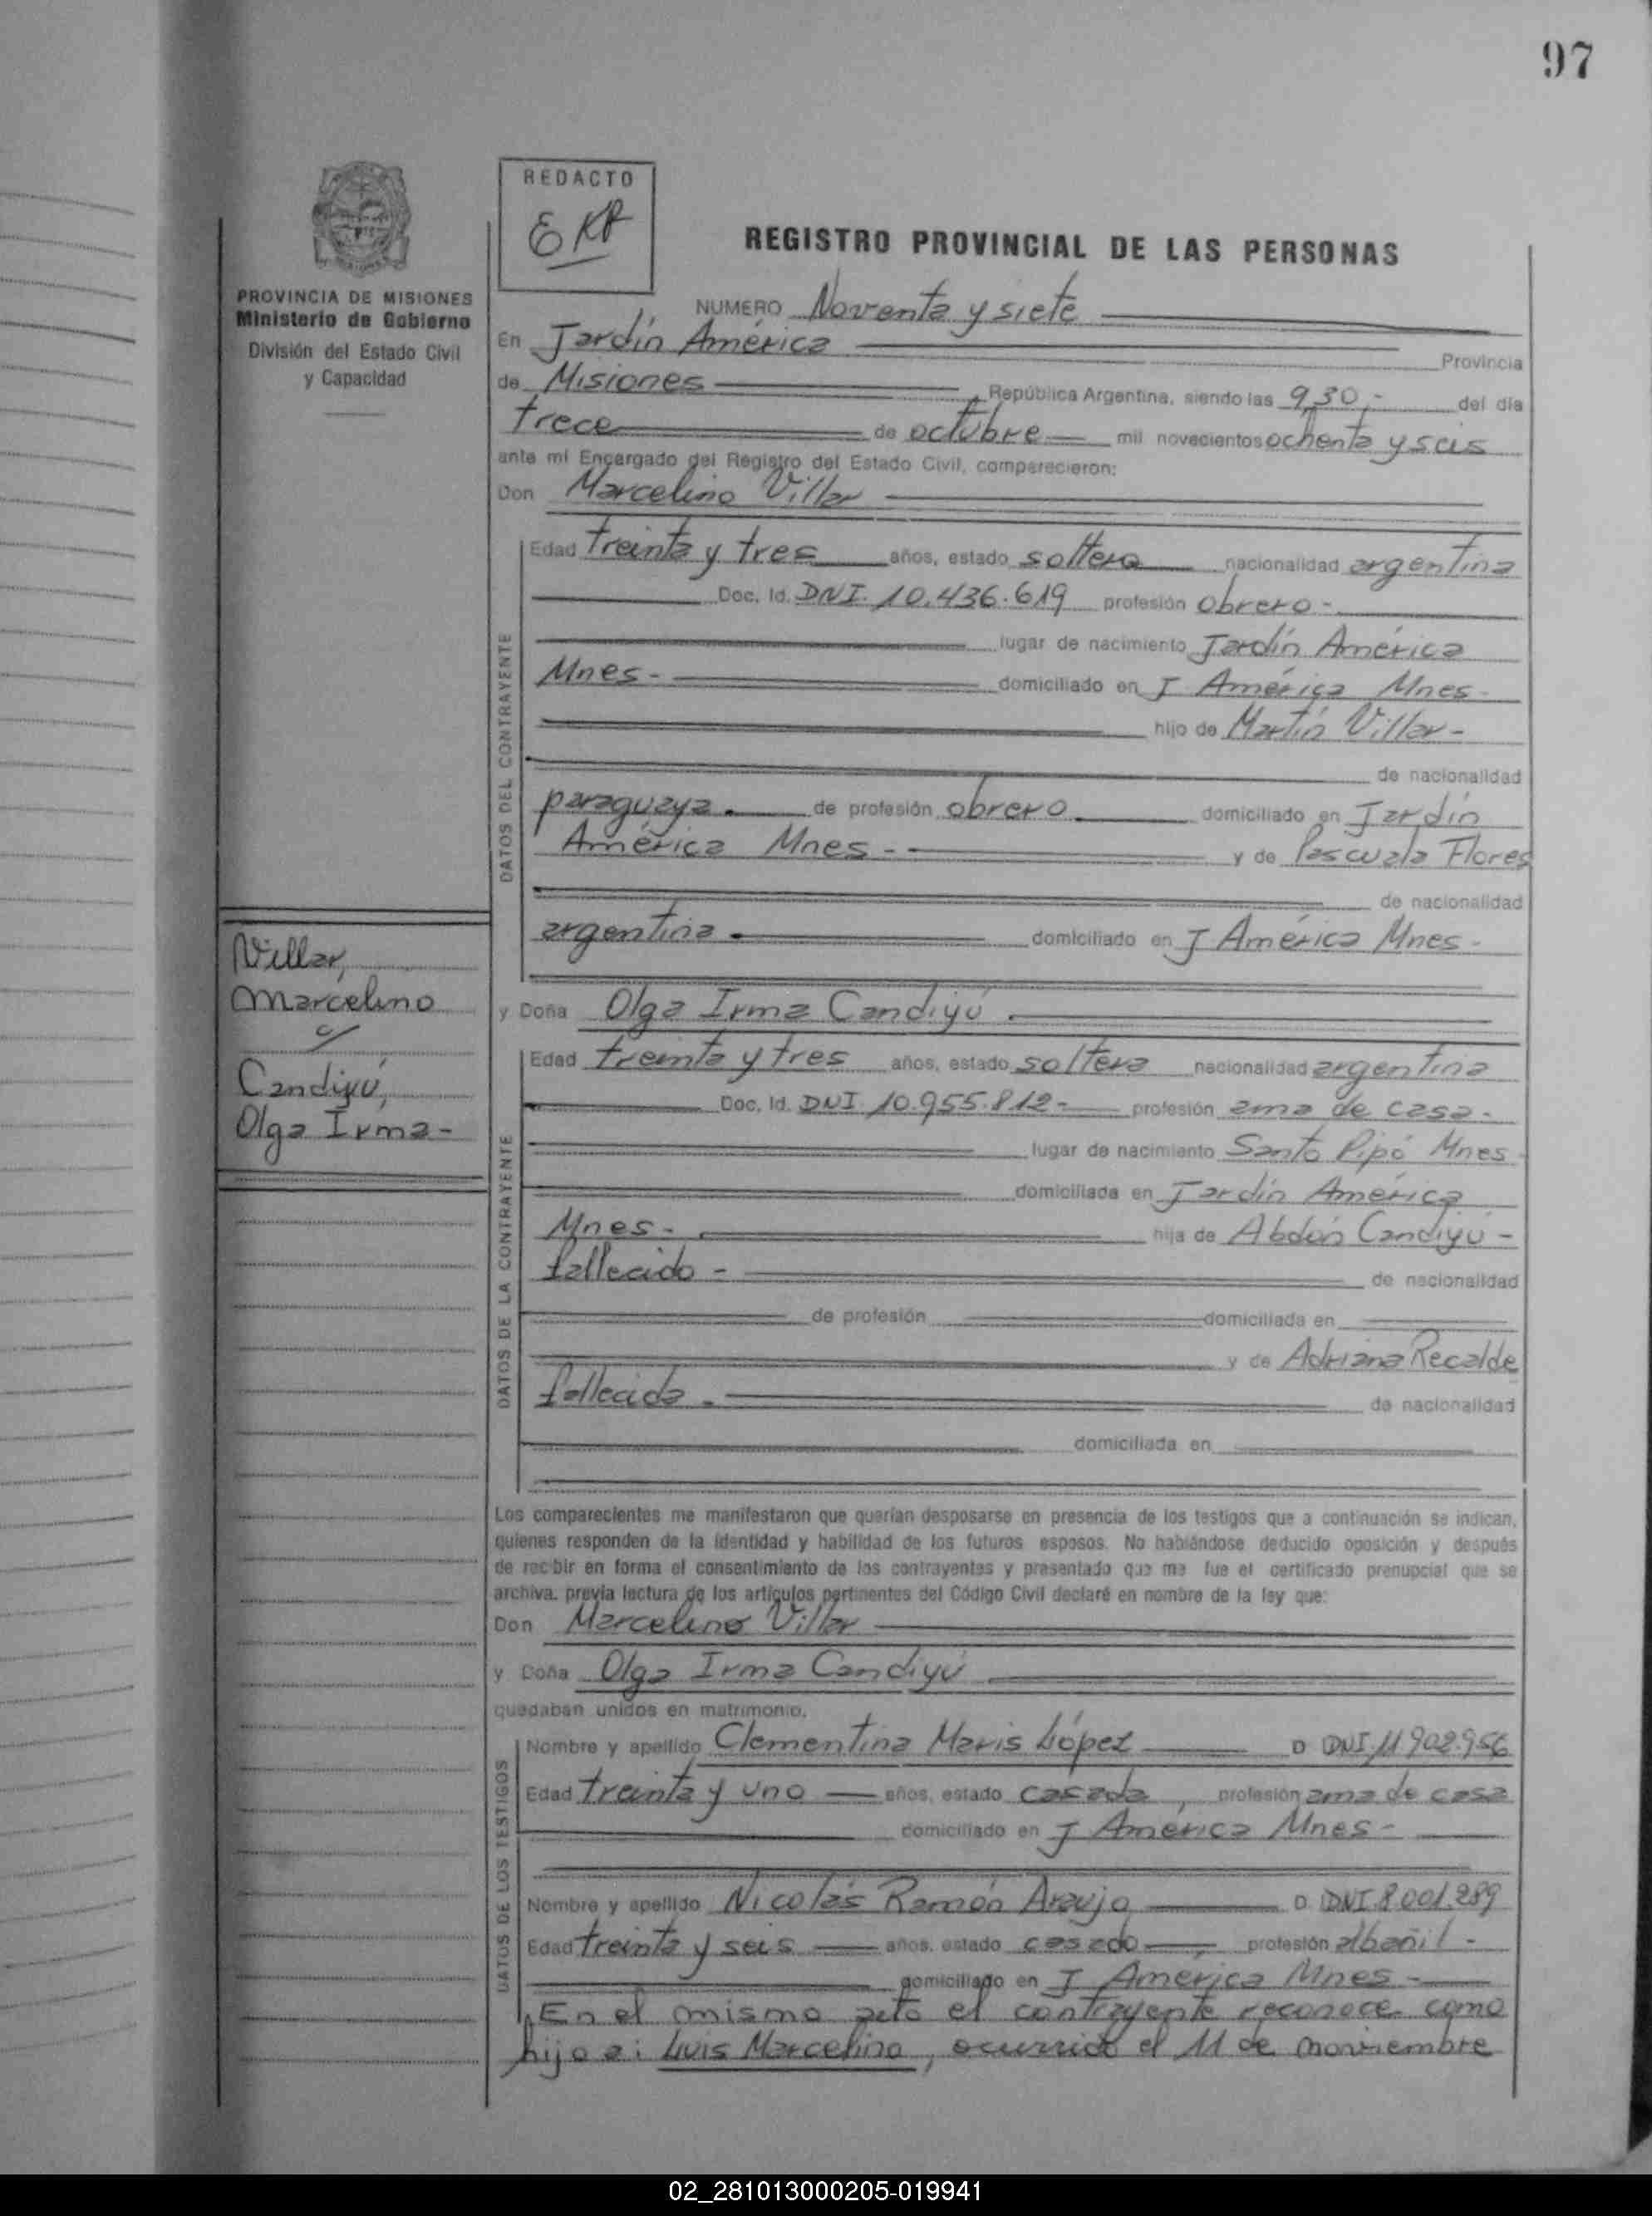 97
REDACTO
PROVINCIA DE MISIONES
Ministerio de Gobierno
División del Estado Civil
y Capacidad
REGISTRO PROVINCIAL DE LAS PERSONAS
NUMERO Noventa y siete
En Jardín América Provincia
de Misiones República Argentina, siendo las 9,30,- del día
trece de octubre mil novecientos ochenta y seis
ante mi Encargado del Registro del Estado Civil, comparecieron:
Don Marcelino Villar
DATOS DEL CONTRAYENTE
Edad treinta y tres años, estado soltero nacionalidad argentina
Doc. Id. DNI. 10.436.619 profesión obrero -
lugar de nacimiento Jardín América
Mnes - domiciliado en J América Mnes -
hijo de Martín Villar -
de nacionalidad
paraguaya. de profesión obrero domiciliado en Jardín
América Mnes - y de Pascuala Flores
de nacionalidad
argentina. domiciliado en J América Mnes -
Villar,
Marcelino
c/
Candiyú,
Olga Irma -
y Doña Olga Irma Candiyú.
DATOS DE LA CONTRAYENTE
Edad treinta y tres años, estado soltera nacionalidad argentina
Doc. Id. DNI 10.955.812 - profesión ama de casa.
lugar de nacimiento Santo Pipó Mnes
domiciliada en Jardín América
Mnes - hija de Abdón Candiyú -
fallecido - de nacionalidad
de profesión domiciliada en
y de Adriana Recalde
fallecida - de nacionalidad
domiciliada en
Los comparecientes me manifestaron que querían desposarse en presencia de los testigos que a continuación se indican,
quienes responden de la identidad y habilidad de los futuros esposos. No habiéndose deducido oposición y después
de recibir en forma el consentimiento de los contrayentes y presentado que me fue el certificado prenupcial que se
archiva, previa lectura de los artículos pertinentes del Código Civil declaré en nombre de la ley que:
Don Marcelino Villar
y Doña Olga Irma Candiyú
quedaban unidos en matrimonio.
DATOS DE LOS TESTIGOS
Nombre y apellido Clementina Maris López D DNI 11.902.956
Edad treinta y uno años, estado casada, profesión ama de casa
domiciliado en J América Mnes -
Nombre y apellido Nicolás Ramón Araujo D. DNI.8.001.289
Edad treinta y seis años, estado casado, profesión albañil -
domiciliado en J América Mnes -
En el mismo acto el contrayente reconoce como
hijo a: Luis Marcelino, ocurrido el 11 de noviembre
02_281013000205-019941